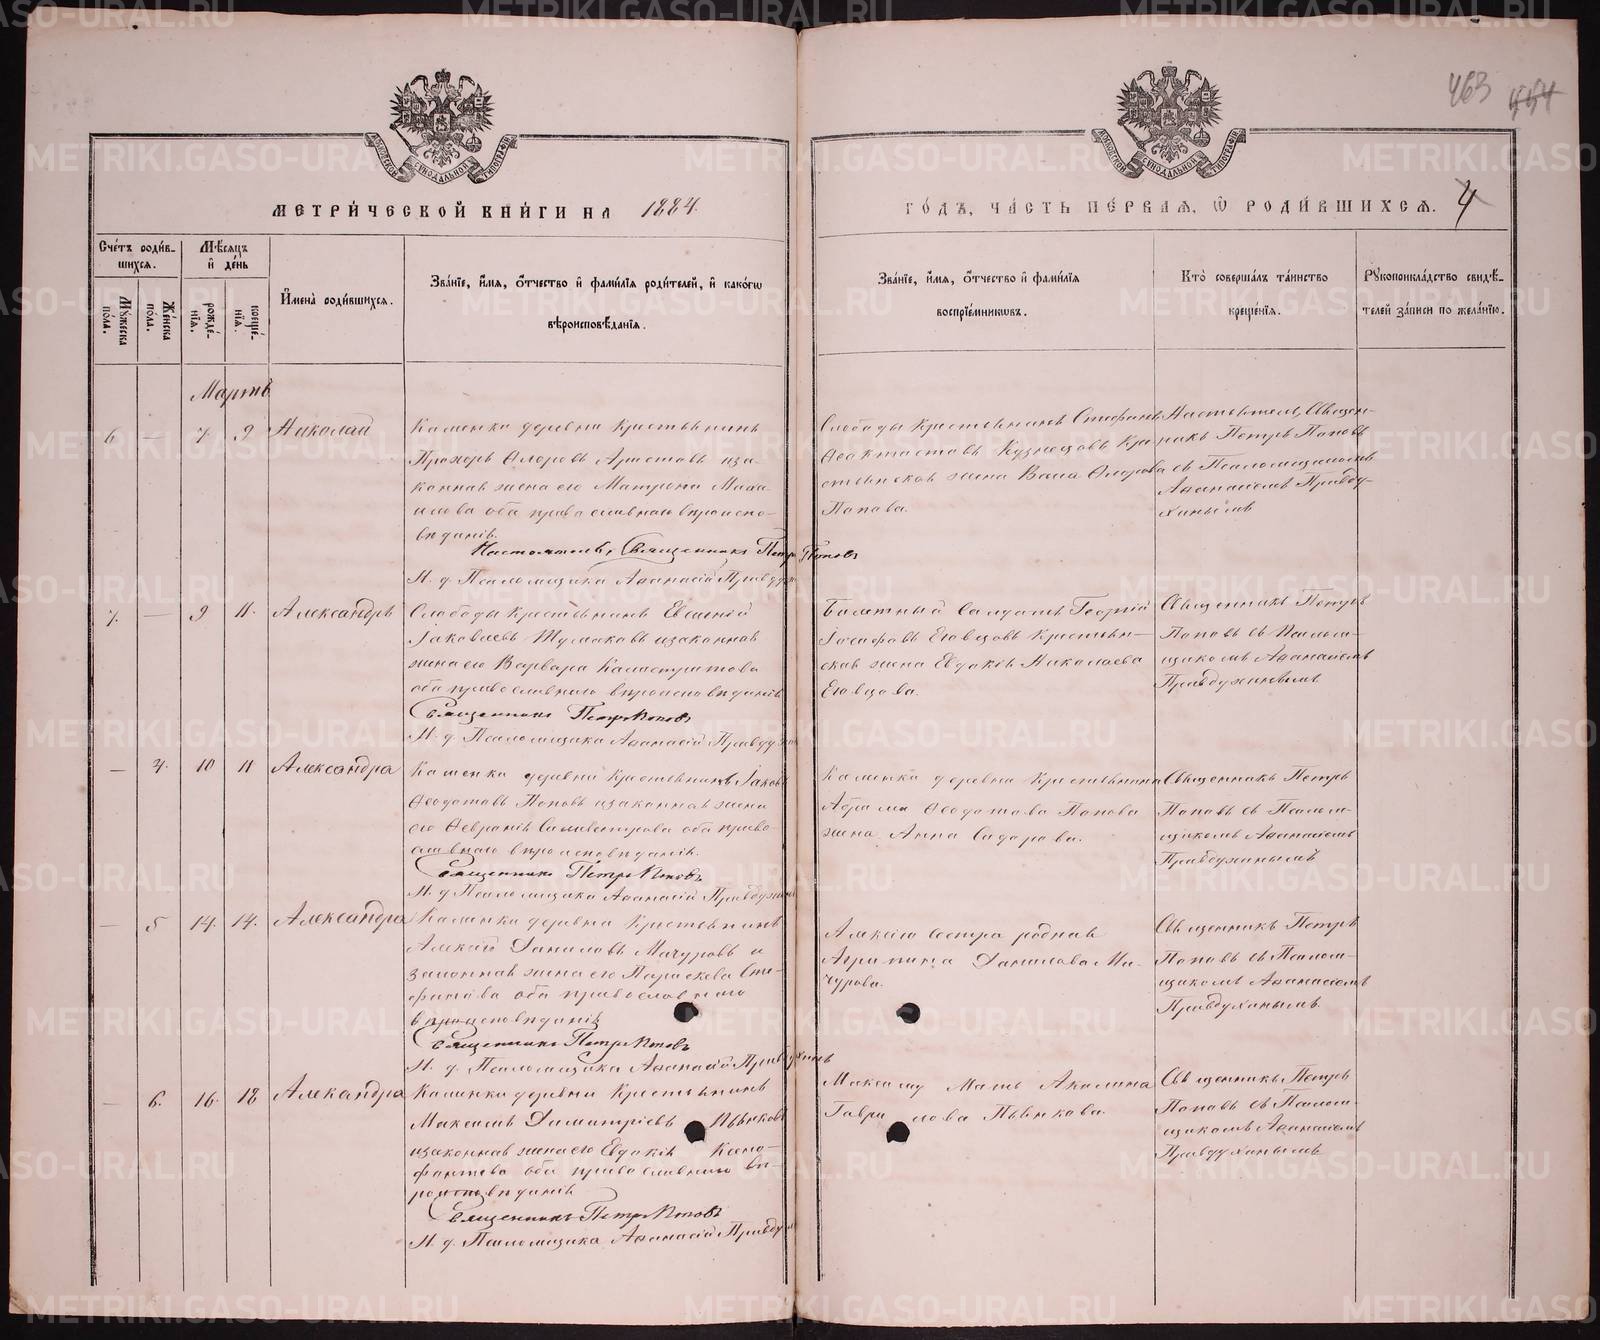 463 444
МОСКОВСКОЙ СУНОДАЛЬНОЙ ТИПОГРАФІИ
МОСКОВСКОЙ СУНОДАЛЬНОЙ ТИПОГРАФІИ
МЕТРИ́ЧЕСКОЙ КНИ́ГИ НА 1884.
ГО́ДЪ, ЧА́СТЬ ПЕ́РВАЯ, Ѡ РОДИ́ВШИХСЯ. 4
Сче́тъ роди́вшихся.
Мꙋ́жеска по́ла.
Же́нска по́ла.
Мѣ́сяцъ и де́нь
рожде́нїя.
креще́нїя.
И҆мена̀ роди́вшихся.
Зва́нїе, и҆́мя, ѻ҆́тчество и҆ фами́лїя роди́телей, и҆ како́гѡ
вѣроисповѣ́данїя.
Зва́нїе, и҆́мя, ѻ҆́тчество и҆ фами́лїя
воспрїе́мниковъ.
Кто̀ соверша́лъ та́инство
креще́нїя.
Рꙋкоприкла́дство свидѣ́-
телей за́писи по жела́нїю.
Мартъ
6 — 7 9 Николай
Каменки деревни Крестьянинъ
Прохоръ Ѳлоровъ Аристовъ иза-
конная жена его Матрона Миха-
илова оба православнаго вѣроиспо-
вѣданія.
Настоятель, Священникъ Петръ Поповъ
И. д. Псаломщика Аѳанасій Правдух
Слободы Крестьянинъ Стефанъ
Ѳеоктистовъ Кузнецовъ Кре
стьянская жена Васса Ѳлорова
Попова.
Настоятель, Священ-
никъ Петръ Поповъ
съ Псаломщикомъ
Аѳанасіемъ Правду-
хинымъ
7. — 9 11. Александръ
Слободы Крестьянинъ Евгеній
Іаковлевъ изаконная
жена его Варвара
оба православнаго вѣроисповѣданія
Священникъ Петръ Поповъ
И. д. Псаломщика Аѳанасій Правдух
Билетный Солдатъ Георгій
Іосифовъ Крестьян-
ская жена Евдокія Николаева
Священникъ Петръ
Поповъ съ Псалом-
щикомъ Аѳанасіемъ
Правдухинымъ
— 4. 10 11 Александра
Каменки деревни Крестьянинъ Іаковъ
Ѳеодотовъ Поповъ изаконная жена
его Ѳевронія Сильвестрова оба право-
славнаго вѣроисповѣданія.
Священникъ Петръ Поповъ
И. д. Псаломщика Аѳанасій Правдухинъ
Каменки деревни Крестьянина
Абрама Ѳеодотова Попова
жена Анна Сидорова.
Священникъ Петръ
Поповъ съ Псалом-
щикомъ Аѳанасіемъ
Правдухинымъ
— 5 14. 14. Александра
Каменки деревни Крестьянинъ
Алексій Даниловъ Мичуровъ и
законная жена его Параскева Сте-
фанова оба православнаго
вѣроисповѣданія
Священникъ Петръ Поповъ
И. д. Псаломщика Аѳанасій Правдухинъ
Алексію сестра родная
Агрипина Данилова Ми-
чурова.
Священникъ Петръ
Поповъ съ Псалом-
щикомъ Аѳанасіемъ
Правдухинымъ
— 6. 16. 18 Александра
Каменки деревни Крестьянинъ
Максимъ Димитріевъ Пьянковъ
изаконная жена его Евдокія Ксено-
фонтова оба православнаго вѣ-
роисповѣданія
Священникъ Петръ Поповъ
И. д. Псаломщика Аѳанасій Правдух
Максиму Мать Акилина
Гаврилова Пьянкова.
Священникъ Петръ
Поповъ съ Псалом-
щикомъ Аѳанасіемъ
Правдухинымъ
METRIKI.GASO-URAL.RU